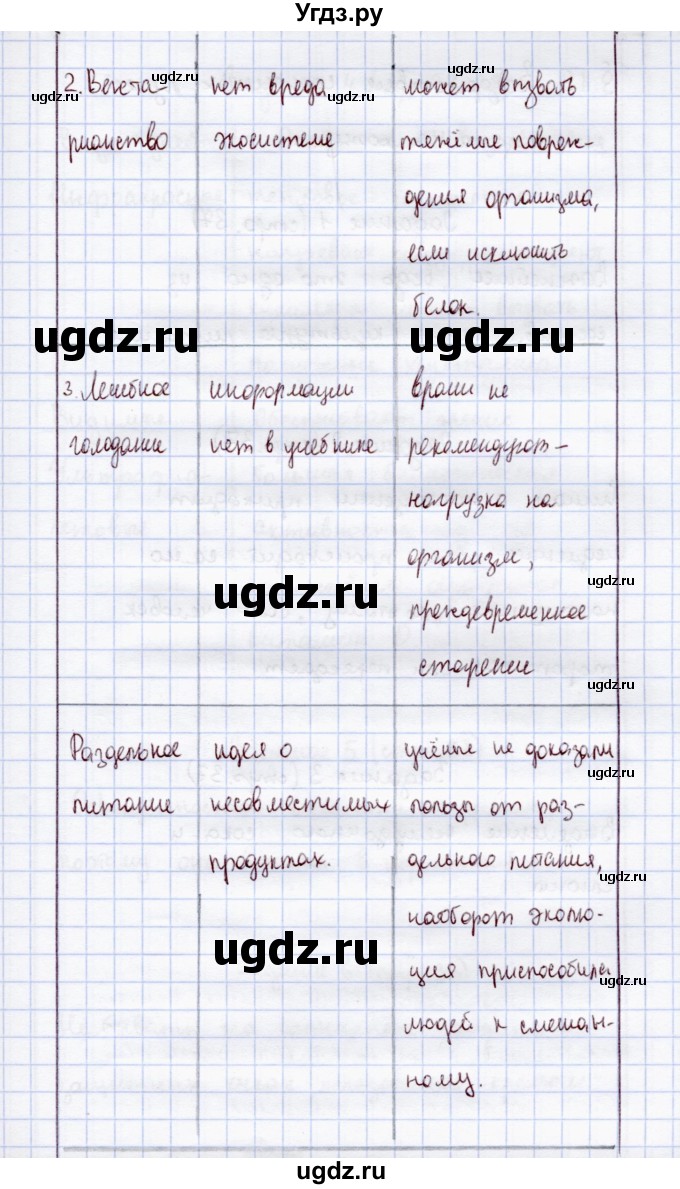 Угдз.ру
2. Вегета- нет вреда может вызвать
рианство экосистеме тяжёлые повреж-
дения организма,
если исключить
белок.
3. Лечебное информации врачи не
голодание нет в учебнике рекомендуют –
нагрузка на
организм,
преждевременное
старение
Раздельное идея о учёные не доказали
питание несовместимых пользы от раз-
продуктах. дельного питания,
наоборот эволю-
ция приспособила
людей к смешан-
ному.
ugdz.ru
ugdz.ru
ugdz.ru
ugdz.ru
ugdz.ru
ugdz.ru
ugdz.ru
ugdz.ru
ugdz.ru
ugdz.ru
ugdz.ru
ugdz.ru
ugdz.ru
ugdz.ru